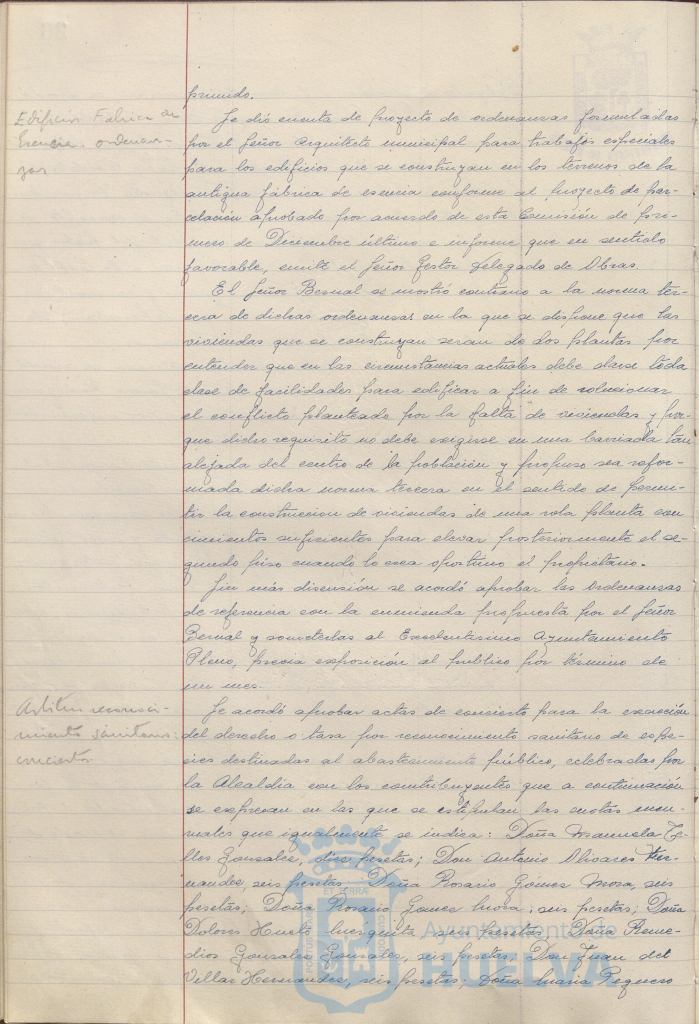 primido.
Edificios Fabrica de
Esencia. ordenan-
zas
Se dió cuenta de Proyecto de ordenanzas formuladas
por el Señor Arquitecto municipal para trabajos especiales
para los edificios que se construyan en los terrenos de la
antigua fábrica de esencia conforme al proyecto de par-
celación aprobado por acuerdo de esta Comisión de pri-
mero de Diciembre último e informe que en sentido
favorable, emite el Señor Gestor delegado de Obras.
El Señor Bernal se mostró contrario a la norma ter-
cera de dichas ordenanzas en la que se dispone que las
viviendas que se construyan seran de dos plantas por
entender que en las circunstancias actuales debe darse toda
clase de facilidades para edificar a fin de solucionar
el conflicto planteado por la falta de viviendas y por-
que dicho requisito no debe exigirse en una barriada tan
alejada del centro de la población y propuso sea refor-
mada dicha norma tercera en el sentido de permi-
tir la construccion de viviendas de una sola planta con
cimientos suficientes para elevar posteriormente el se-
gundo piso cuando lo crea oportuno el propietario.
Sin más discusión se acordó aprobar las Ordenanzas
de referencia con la enmienda propuesta por el Señor
Bernal y someterlas al Excelentisimo Ayuntamiento
Pleno, previa exposición al publico por término de
un mes.
Arbitrio reconoci-
miento sanitario:
conciertos
Se acordó aprobar actas de concierto para la exacción
del derecho o tasa por reconocimiento sanitario de espe-
cies destinadas al abastecimiento público, celebradas por
la Alcaldia con los contribuyentes que a continuación
se expresan en las que se estipulan las cuotas men-
suales que igualmente se indica: Doña Manuela Te-
lles Gonzalez, diez pesetas; Don Antonio Olivares Her-
nandez, seis pesetas Doña Rosario Gómez Mora, seis
pesetas; Doña Rosario Gomez Mora; seis pesetas; Doña
Dolores Hueto Mesquita seis pesetas Doña Reme-
dios Gonzalez Gonzalez, seis pesetas, Don Juan del
Villar Hernandez, seis pesetas. Doña Maria Piquero
Ayuntamiento de
HUELVA